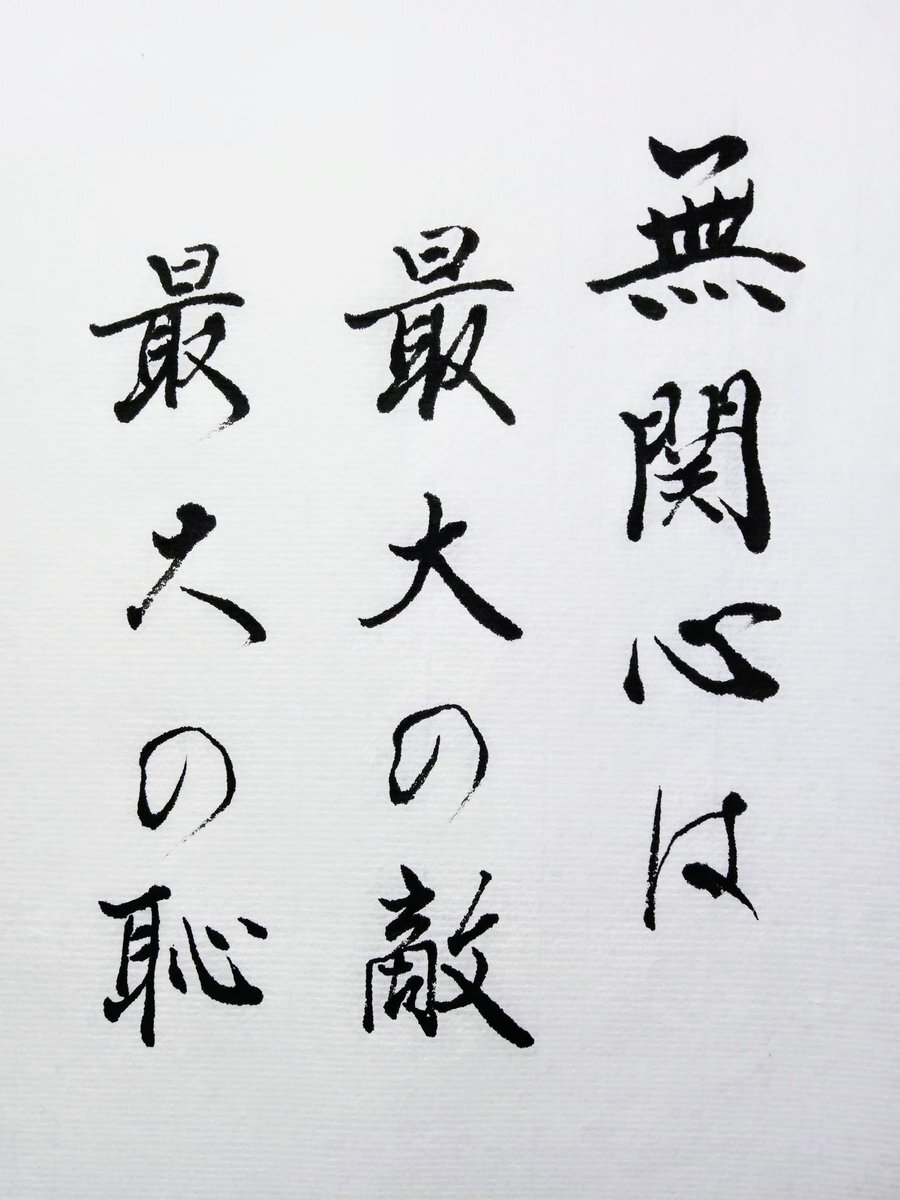 無関心は
最大の敵
最大の恥